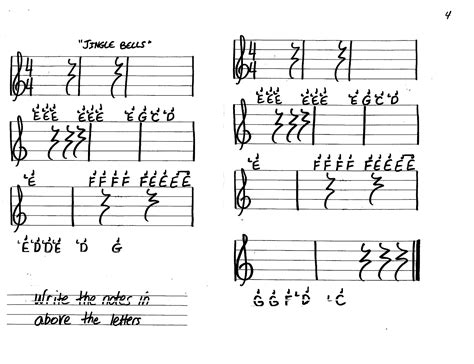 4
"JINGLE BELLS"
4 4
E E E E E E E G C D
E F F F F F E E E E
E D D E D G
Write the notes in
above the letters
4 4
E E E E E E E G C D
E F F F F F E E E E
G G F D C